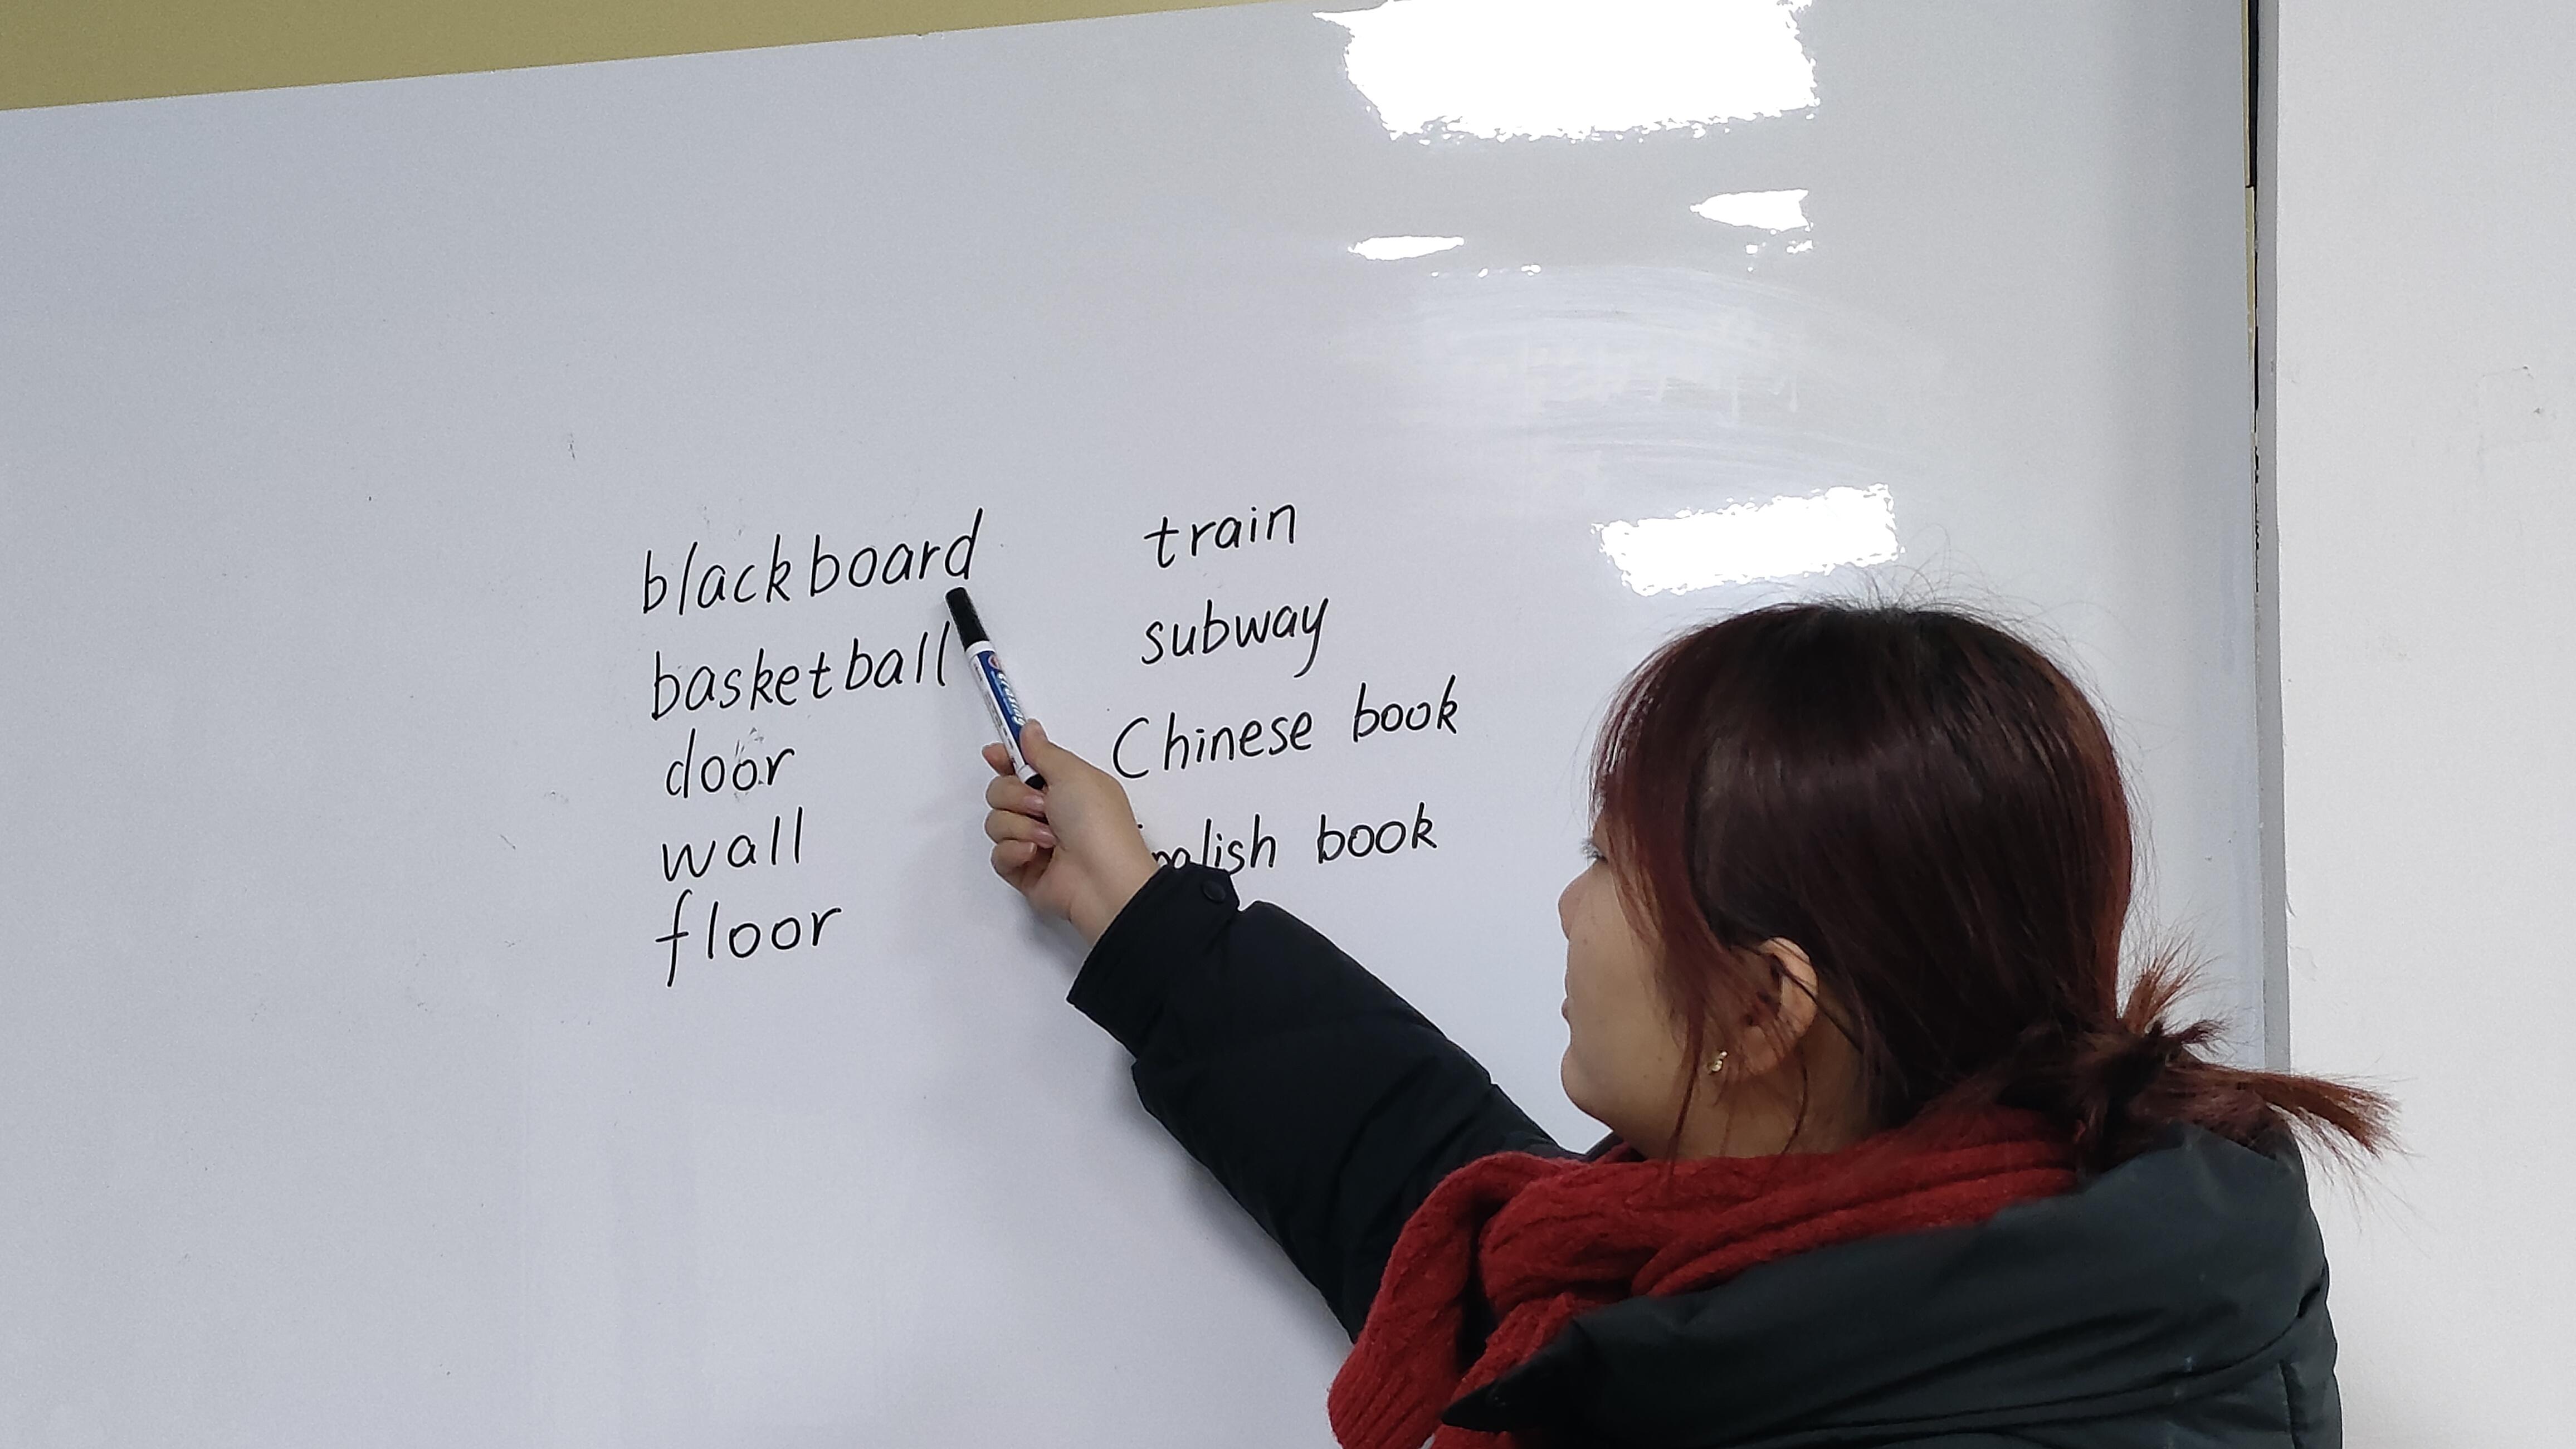 blackboard
basketball
door
wall
floor
train
subway
Chinese book
book